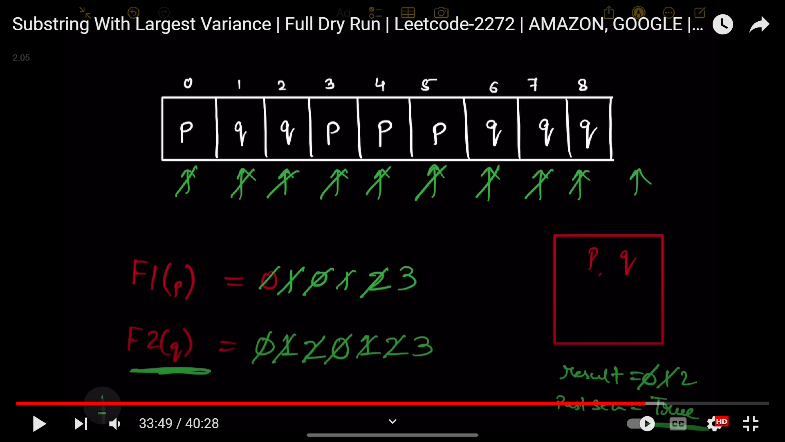 Substring With Largest Variance | Full Dry Run | Leetcode-2272 | AMAZON, GOOGLE |...
2.05
0 1 2 3 4 5 6 7 8
p q q p p p q q q
F1(p) = 0 0 1 0 1 2 3
P, q
F2(q) = 0 1 2 0 1 2 3
result = 0 1 2
Past = True
33:49 / 40:28
CC
HD